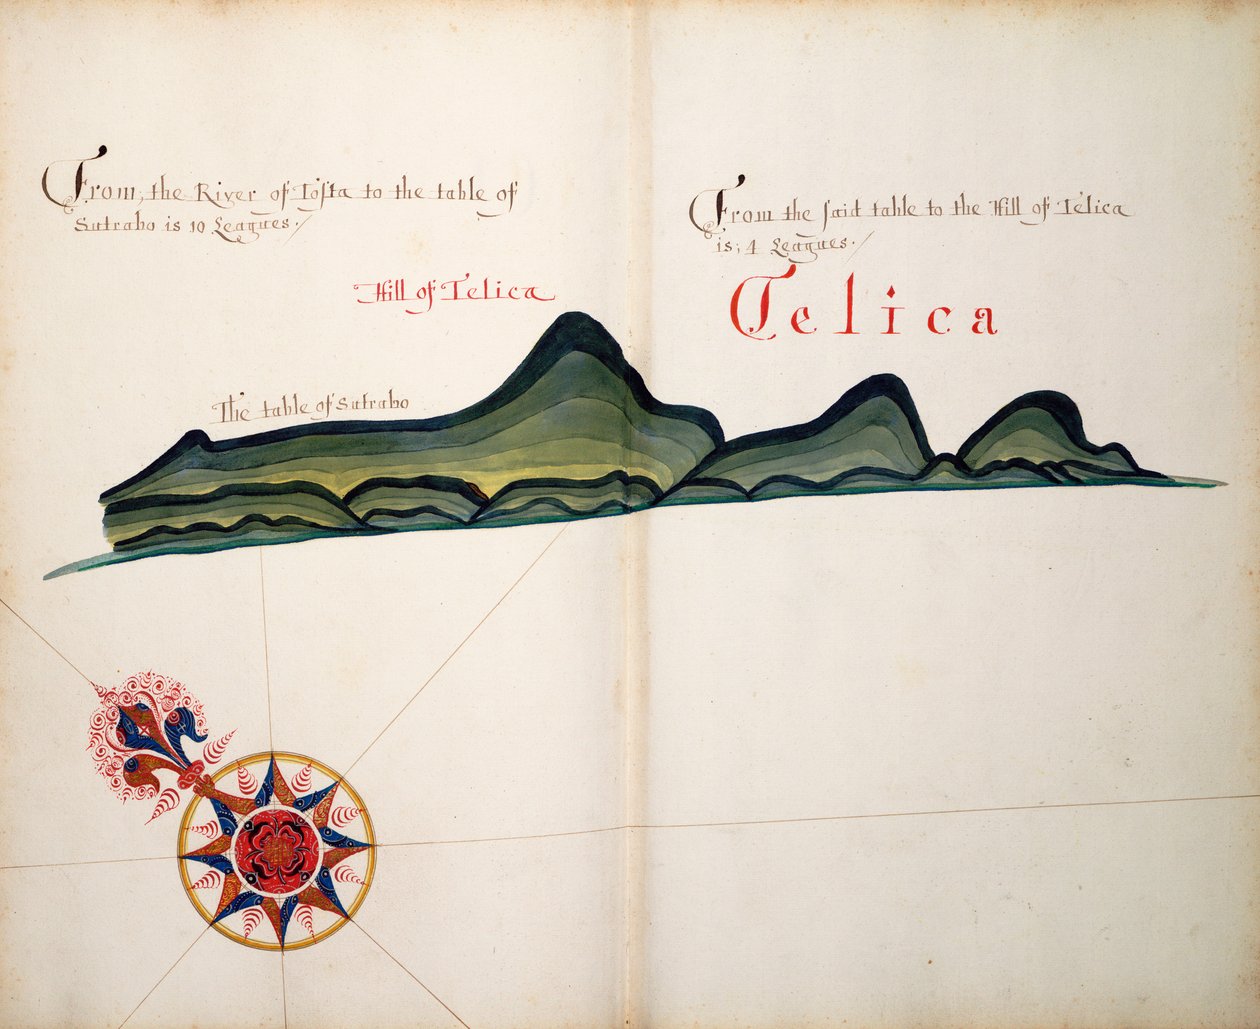 From, the River of Tosta to the table of
Sutrabo is 10 Leagues.
From the said table to the Hill of Telica
is; 4 Leagues.
Hill of Telica
Telica
The table of Sutrabo